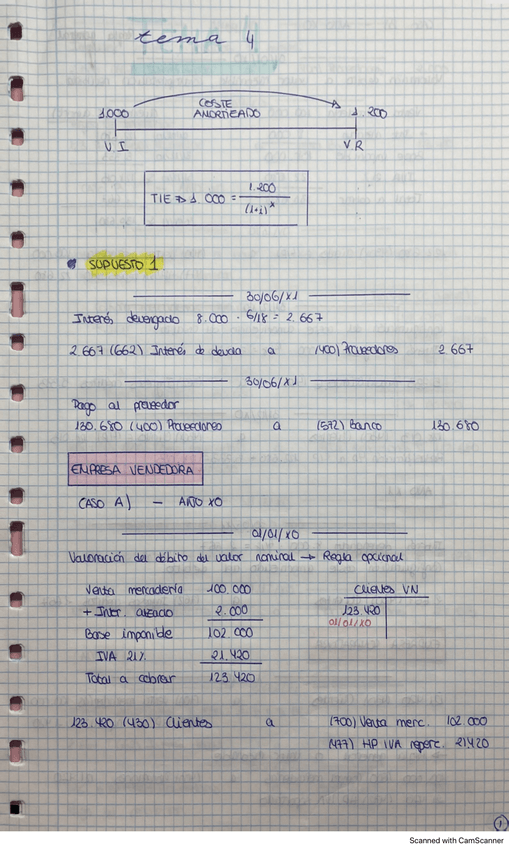 tema 4
COSTE
1.000 AMORTIZADO 1.200
V I V R
TIE => 1.000 = 1.200 / (1+i)^x
SUPUESTO 1
30/06/X1
Interés devengado 8.000 · 6/18 = 2.667
2.667 (662) Interés de deuda a (400) Proveedores 2.667
30/06/X1
Pago al proveedor
130.680 (400) Proveedores a (572) Banco 130.680
EMPRESA VENDEDORA
CASO A) - AÑO X0
01/01/X0
Valoración del débito del valor nominal → Regla opcional
Venta mercadería 100.000 Clientes VN
+ Inter. aplazacio 2.000 123.420
Base imponible 102 000 01/01/X0
IVA 21% 21.420
Total a cobrar 123 420
123.420 (430) Clientes a (700) Venta merc. 102 000
(477) HP IVA reperc. 21420
1
Scanned with CamScanner